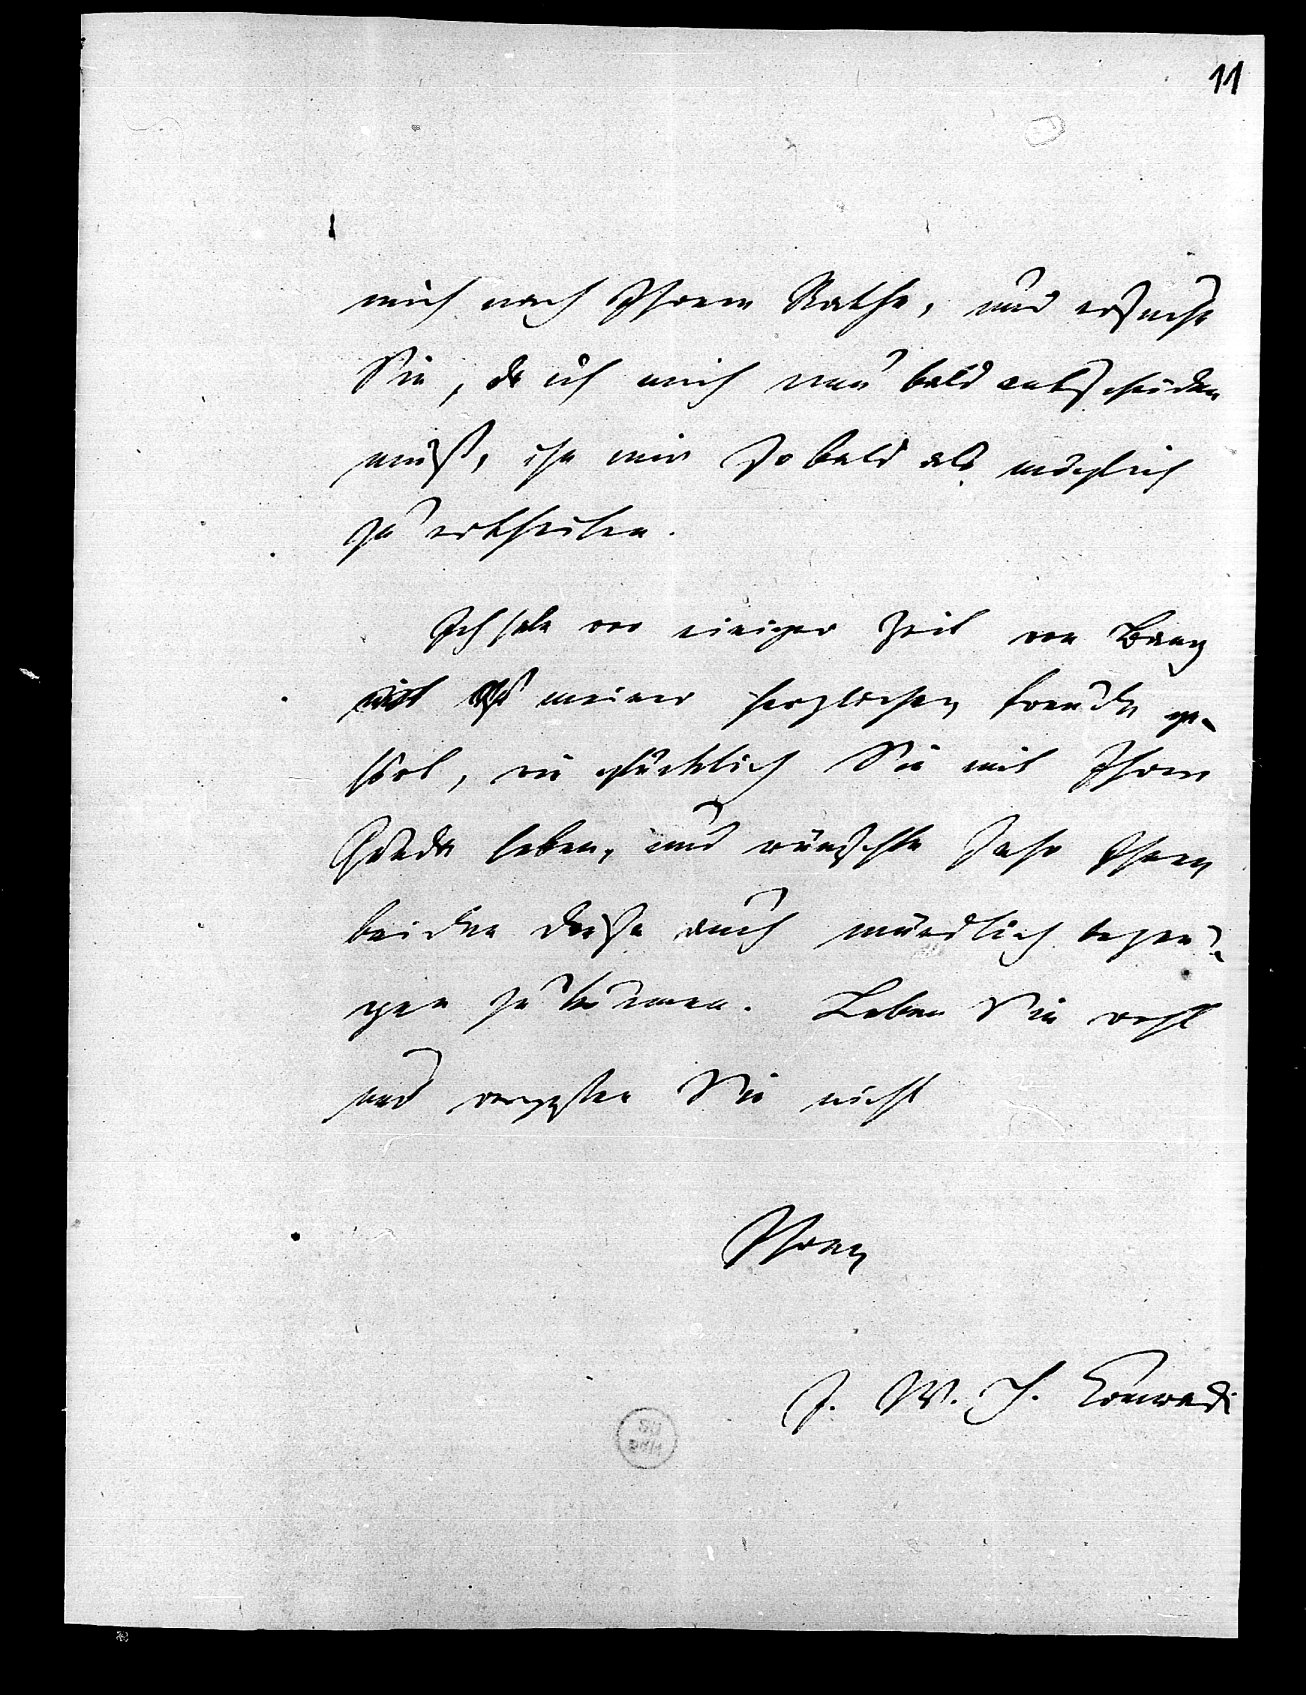 11
mich nach Ihrem Rathe, und ersuche
Sie, da ich mich nun bald entscheiden
muß, ihn mir so bald als möglich
zu ertheilen.
Ich habe vor einiger Zeit von Bang
mit meiner herzlichen Freude ge-
hört, wie glücklich Sie mit Ihrer
leben, und wünschte sehr Ihnen
beiden diese auch mündlich bezeu-
gen zu können. Leben Sie wohl
und vergessen Sie nicht
Ihren
J. W. H. Conradi